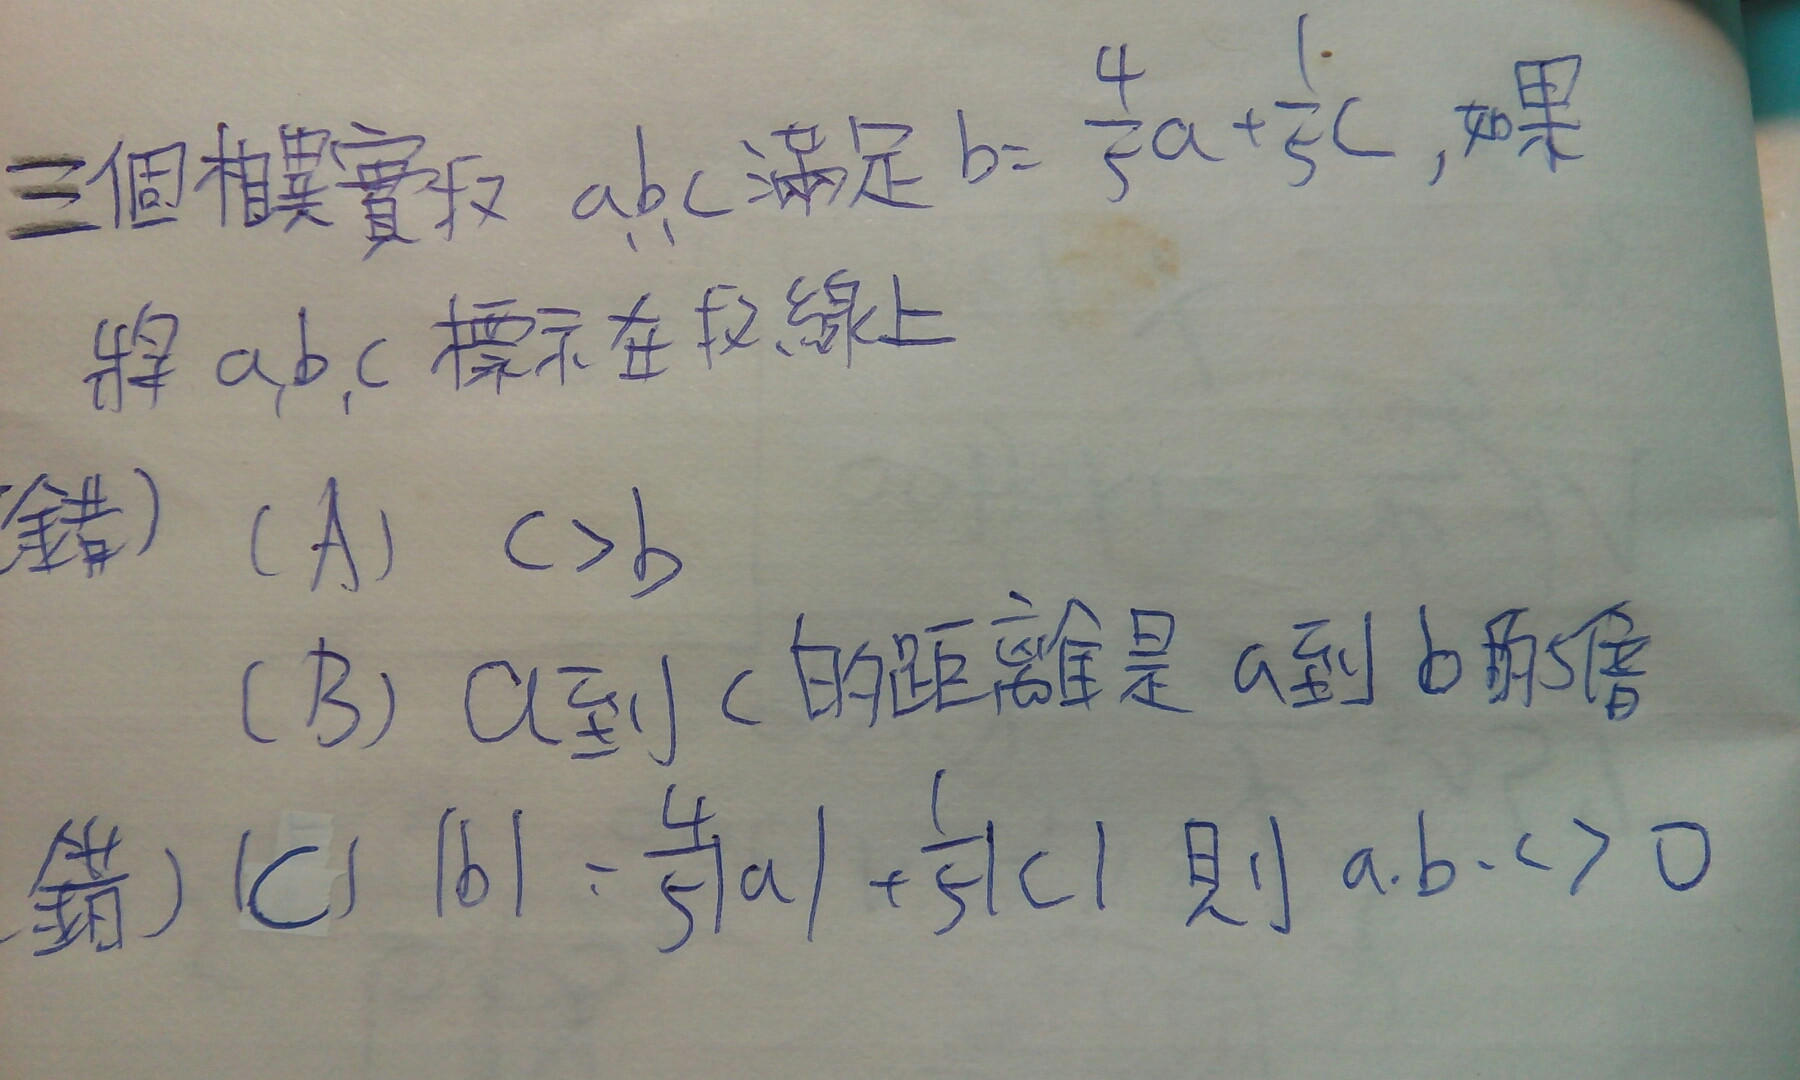 三個相異實数 a,b,c滿足 b=4/5a+1/5c,如果
將 a,b,c 標示在数線上
錯) (A) c>b
(B) a到c的距離是 a到b的5倍
錯) (C) |b| = 4/5|a| + 1/5|c| 則 a.b.c>0